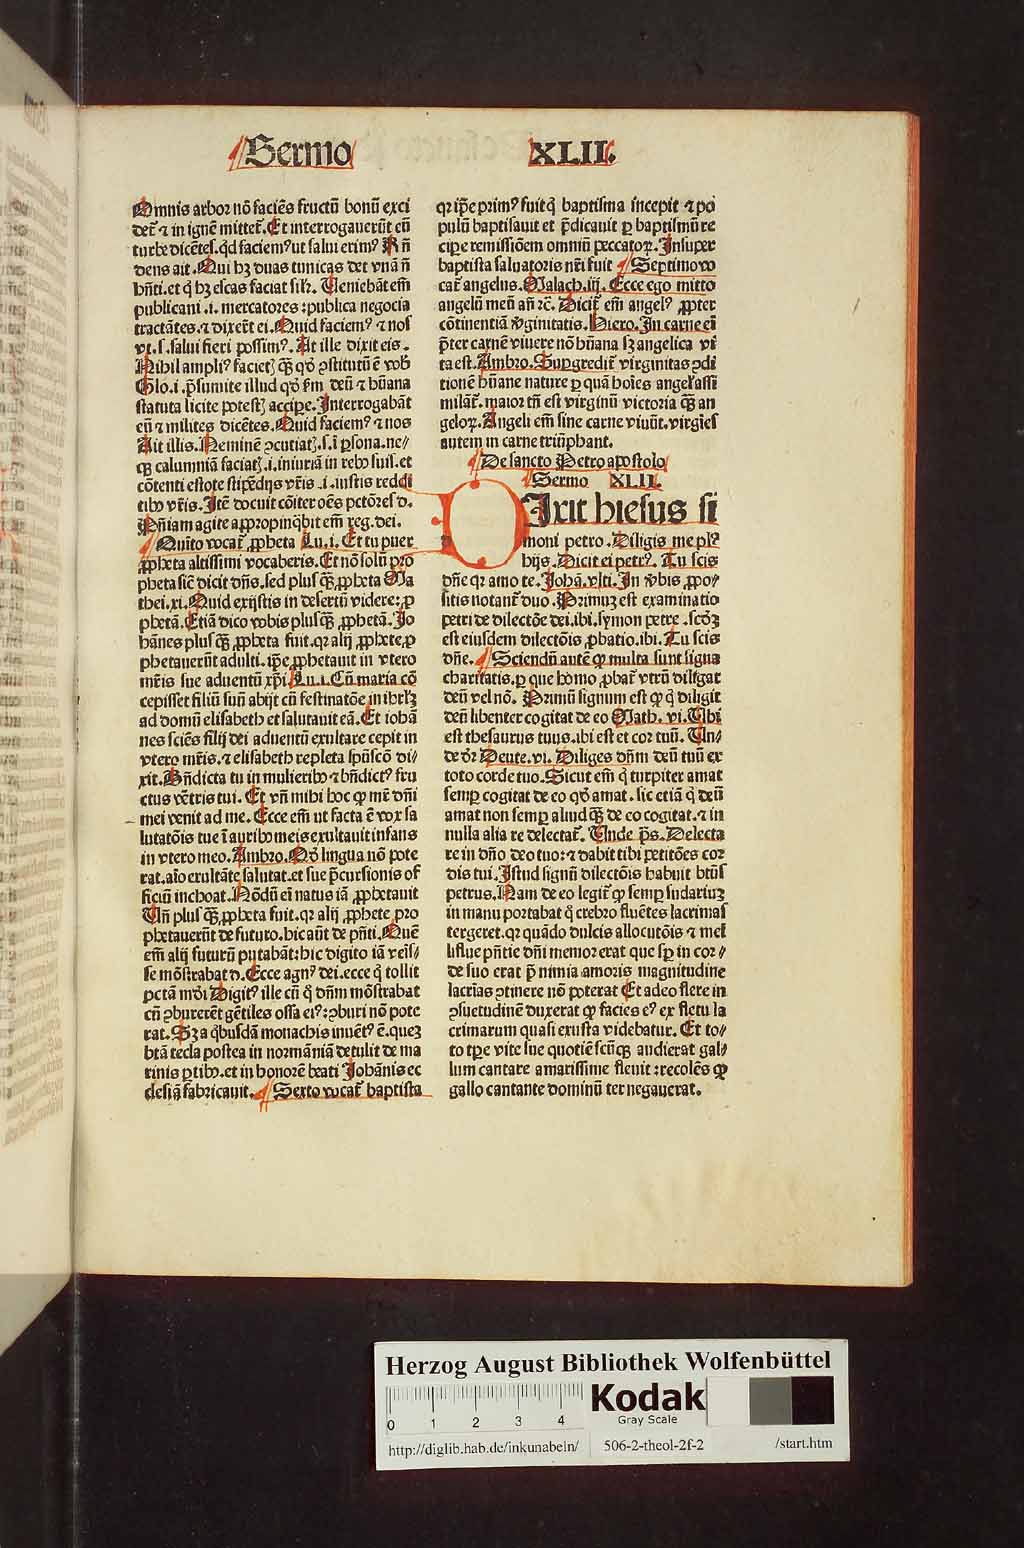 Sermo XLII.
Omnis arbor nō faciēs fructū bonū exci
det᷑ ⁊ in ignē mittet᷑. Et interrogauerūt eū
turbe dicētes. qd faciemꝰ ut salui erimꝰ Rñ
dens ait. Qui hꝫ duas tunicas det vnā ñ
hñti. et q̇ hꝫ escas faciat silr. Ueniebāt em̄
publicani .i. mercatores : publica negocia
tractātes. ⁊ dixert̄ ei. Quid faciemꝰ ⁊ nos
vt .s. salui fieri possimꝰ. At ille dixit eis.
Nihil ampliꝰ facietꝫ qꝫ̄ qd̕ ꝯstitutū ē vob̄
Glo .i. p̄sumite illud qd̕ ẜm deū ⁊ hūana
statuta licite potestꝫ accipe. Interrogabāt
eū ⁊ milites dicētes. Quid faciemꝰ ⁊ nos
Ait illis. Neminē ꝯcutiatꝫ .s. ī ꝑsona. ne⸗
qꝫ calumniā faciatꝫ .i. iniuriā in rebꝰ suis. et
cōtenti estote stipēdijs vr̄is .i. iustis reddi
tibꝰ vr̄is. Itē docuit cōiter oēs pctōres d.
Pn̄iam agite appropinq̇bit em̄ reg. dei.
Quīto vocat᷑ ꝓpheta Lu. i. Et tu puer
ꝓpheta altissimi vocaberis. Et nō solū pro
pheta sic̄ dicit dn̄s. sed plus qꝫ̄ ꝓpheta Ma
thei. xi. Quid exijstis in desertū videre: ꝓ
phetā. Etiā dico vobis plusqꝫ̄ ꝓphetā. Jo
hānes plus qꝫ̄ ꝓpheta fuit. qr alij ꝓphete ꝓ
phetauerūt adulti. ip̄e ꝓphetauit in vtero
mr̄is sue aduentū xp̄i Lu. i. Cū maria cō
cepisset filiū suū abijt cū festinatōe in ihrl̄ꝫ
ad domū elisabeth et salutauit eā. Et iohā
nes sciēs filij dei aduentū exultare cepit in
vtero mr̄is. ⁊ elisabeth repleta spūscō di⸗
xit. Bn̄dicta tu in mulieribꝰ ⁊ bn̄dictꝰ fru
ctus vētris tui. Et vn̄ mihi hoc ꝙ mr̄ dn̄i
mei venit ad me. Ecce em̄ ut facta ē vox sa
lutatōis tue ī auribꝰ meis exultauit infans
in vtero meo. Ambro. Qd̕ lingua nō pote
rat. aīo exultāte salutat. et sue p̄cursionis of
ficiū inchoat. Nōdū ei natus iā ꝓphetauit
Un̄ plus qꝫ̄ ꝓpheta fuit. qr alij ꝓphete pro
phetauerūt de futuro. hic aūt de pn̄ti. Quē
em̄ alij futurū putabāt: hic digito iā veīs⸗
se mōstrabat d. Ecce agnꝰ dei. ecce q̇ tollit
pctā mūdi Digitꝰ ille cū q̇ dn̄m mōstrabat
cū ꝯburerēt gētiles ossa eiꝰ: ꝯburi nō pote
rat. Sꝫ a qbusdā monachis inuētꝰ ē. queꝫ
btā tecla postea in normāniā detulit de ma
rinis ꝑtibꝰ. et in honorē beati Johānis ec
clesiā fabricauit. Sexto vocat᷑ baptista
qr ip̄e primꝰ fuit q̇ baptisma incepit ⁊ po
pulū baptisauit et p̄dicauit ꝑ baptismū re
cipe remissiōem omniū peccatoꝝ. Insuper
baptista saluatoris nr̄i fuit Septimo vo
cat᷑ angelus. Malach. iij. Ecce ego mitto
angelū meū an̄ ⁊c̄. Dicit᷑ em̄ angelꝰ ꝓpter
cōtinentiā v̕ginitatis. Hiero. In carne ei
p̄ter carnē viuere nō hūana sꝫ angelica vi
ta est. Ambro. Supgredit᷑ virginitas ꝯdi
tionē hūane nature ꝑ quā hoīes angelꝭ assi
milāt᷑. maior tn̄ est virginū victoria qꝫ̄ an
geloꝝ. Angeli em̄ sine carne viuūt. virgīes
autem in carne triūphant.
De sancto Petro apostolo
Sermo XLII.
DIxit hiesus si
moni petro. Diligis me plꝰ
hijs. Dicit ei petrꝰ. Tu scis
dn̄e qr amo te. Johā. vlti. In v̕bis ꝓpo⸗
sitis notant᷑ duo. Primuꝫ est examinatio
petri de dilectōe dei. ibi. symon petre. scd̕ꝫ
est eiusdem dilectōis ꝓbatio. ibi. Tu scis
dn̄e. Sciendū autē ꝙ multa sunt signa
charitatis. ꝑ que homo ꝓbat᷑ vtrū diligat
deū vel nō. Primū signum est ꝙ q̇ diligit
deū libenter cogitat de eo Math. vi. Ubi
est thesaurus tuus. ibi est et cor tuū. Un⸗
de dr̄ Deute. vi. Diliges dn̄m deū tuū ex
toto corde tuo. Sicut em̄ q̇ turpiter amat
semꝑ cogitat de eo qd̕ amat. sic etiā q̇ deū
amat non semꝑ aliud qꝫ̄ de eo cogitat. ⁊ in
nulla alia re delectat᷑. Unde ps̄. Delecta
re in dn̄o deo tuo: ⁊ dabit tibi petitōes cor
dis tui. Istud signū dilectōis habuit bt̄us
petrus. Nam de eo legit᷑ ꝙ semꝑ sudariuꝫ
in manu portabat q̇ crebro fluētes lacrimas
tergeret. qr quādo dulcis allocutōis ⁊ mel
liflue pn̄tie dn̄i memor erat que sp̄ in cor⸗
de suo erat p̄ nimia amoris magnitudine
lacrīas ꝯtinere nō poterat Et adeo flere in
ꝯsuetudinē duxerat ꝙ facies eꝰ ex fletu la
crimarum quasi exusta videbatur. Et to⸗
to tꝑe vite sue quotiēscūqꝫ audierat gal⸗
lum cantare amarissime fleuit: recolēs ꝙ
gallo cantante dominū ter negauerat.
Herzog August Bibliothek Wolfenbüttel
0 1 2 3 4
Kodak
Gray Scale
http://diglib.hab.de/inkunabeln/ 506-2-theol-2f-2 /start.htm